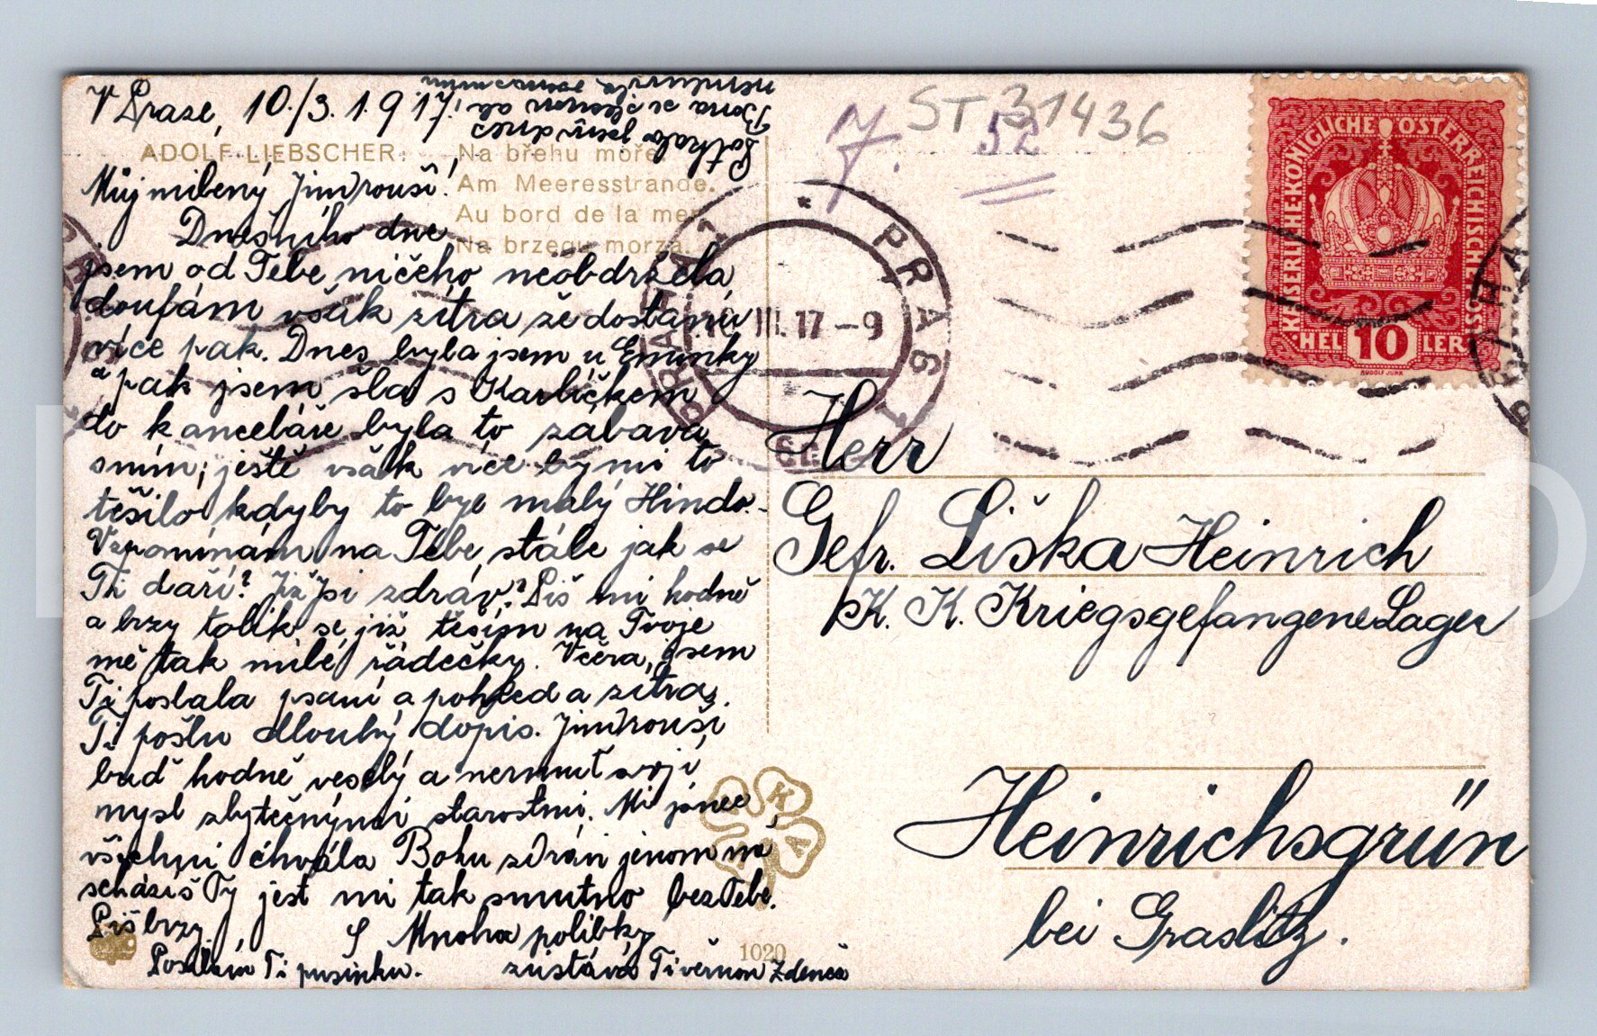 V Praze, 10./3. 1917.
Potkala jsem dnes
ADOLF LIEBSCHER:
Na břehu moře.
Am Meeresstrande.
Au bord de la mer.
Na brzegu morza.
Můj milený Jindrouši!
Dnešního dne
jsem od Tebe ničeho neobdržela
doufám však zítra že dostanu
více pak. Dnes byla jsem u Eminky
a pak jsem šla s Karlíčkem
do kanceláře byla to zábava
s ním; ještě však více by mi to
těšilo kdyby to byl malý Hindo.
Vzpomínám na Tebe stále jak se
Ti daří? Jsi zdráv? Piš mi hodně
a brzy tolik se již těším na Tvoje
mě tak milé řádečky. Včera jsem
Ti poslala psaní a pohled a zítra
Ti pošlu dlouhý dopis. Jindrouši,
buď hodně veselý a nermuť svoji
mysl zbytečnými starostmi. Mi jsme
všichni chvála Bohu zdrávi jenom
scházíš Ty jest mi tak smutno bez Tebe.
Piš brzy. S Mnoha polibky
Posílám Ti pusinku. zůstává Ti věrnou Zdenča
1020
7. ST 31436
52
PRAG 1
PRAHA 1
III. 17 - 9
KAISERLICHE KÖNIGLICHE ÖSTERREICHISCHE POST
HELLER 10
RUDOLF JUNK
Herr
Gefr. Liška Heinrich
K. K. KriegsgefangeneLager
Heinrichsgrün
bei Graslitz.